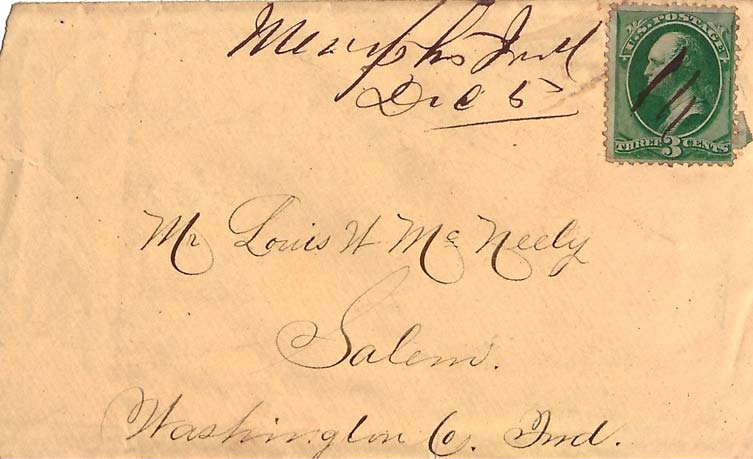 Memphis Ind
Dec 5
U.S. POSTAGE
THREE 3 CENTS
Mr Louis W McNeely
Salem.
Washington Co. Ind.